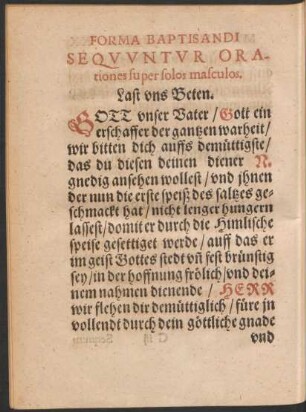 FORMA BAPTISANDI
SEQVVNTVR ORA-
tiones super solos masculos.
Last vns Beten.
GOTT vnser Vater / Gott ein
erschaffer der gantzen warheit /
wir bitten dich auffs demüttigste /
das du diesen deinen diener N.
gnedig ansehen wollest / vnd jhnen
der nun die erste speiß des saltzes ge-
schmackt hat / nicht lenger hungern
lasest / domit er durch die Himlische
speise gesettiget werde / auff das er
im geist Gottes stedt vñ fest brünstig
sey / in der hoffnung frölich / vnd dei-
nem nahmen dienende / HERR
wir flehen dir demüttiglich / füre jn
vollendt durch dein göttliche gnade
vnd